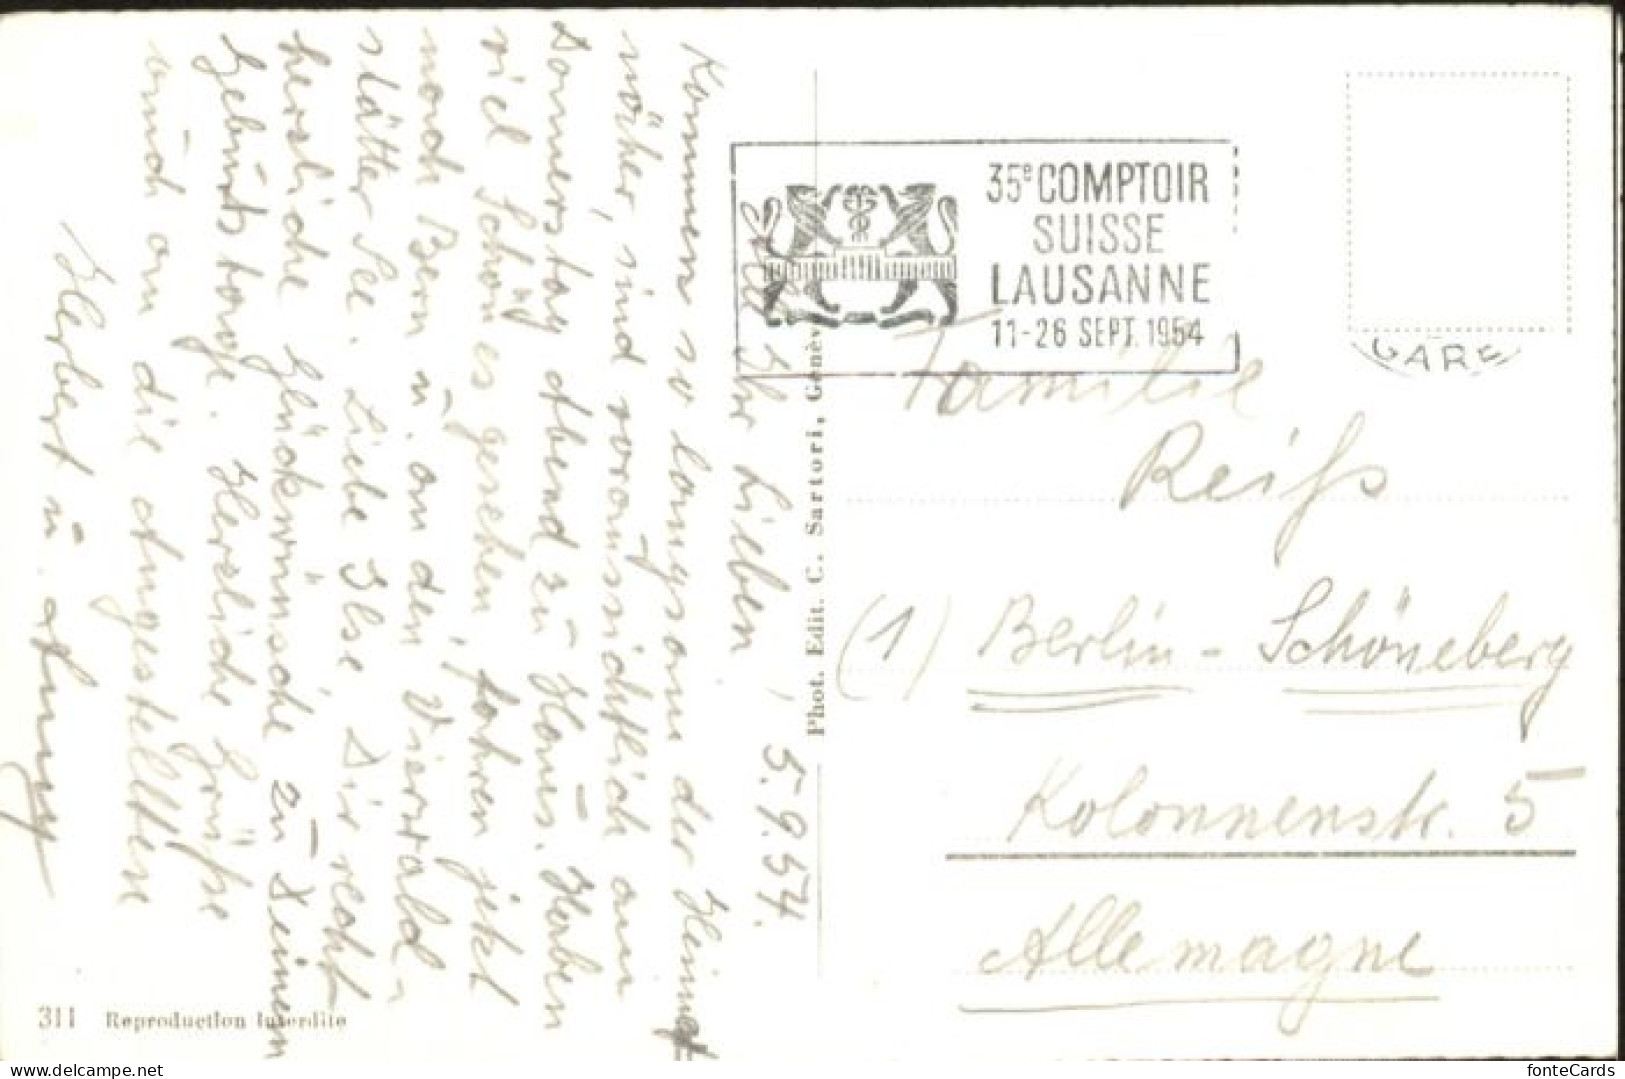 5.9.54.
Alle Ihr Lieben!
Kommen so langsam der Heimat
näher, sind voraussichtlich am
Donnerstag Abend zu Haus. Haben
viel Schönes gesehen, fahren jetzt
nach Bern u. an den Vierwald-
stätter See. Liebe Ilse, Dir recht
herzliche Glückwünsche zu Deinem
Geburtstage. Herzliche Grüße
auch an die Angestellten
Herbert u. Anny
311 Reproduction Interdite
Phot. Edit. C. Sartori, Genève
35e COMPTOIR
SUISSE
LAUSANNE
11-26 SEPT. 1954
GARE
Familie
Reiß
(1) Berlin-Schöneberg
Kolonnenstr. 5
Allemagne
delcampe.net
fonteCards